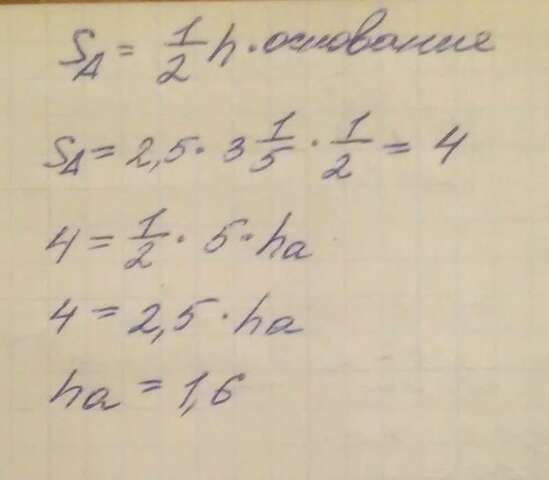 S△ = 1/2 h · основание
S△ = 2,5 · 3 1/5 · 1/2 = 4
4 = 1/2 · 5 · ha
4 = 2,5 · ha
ha = 1,6